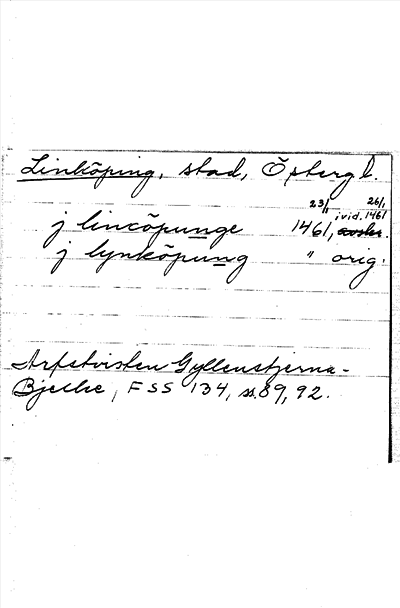 Linköping, stad, Östergl.
23/1 26/1
j lincöpunge 1461, ivid. 1461
j lynköpung " orig.
Arfstvisten Gyllenstjerna-
Bjelke, FSS 134, ss. 89, 92.